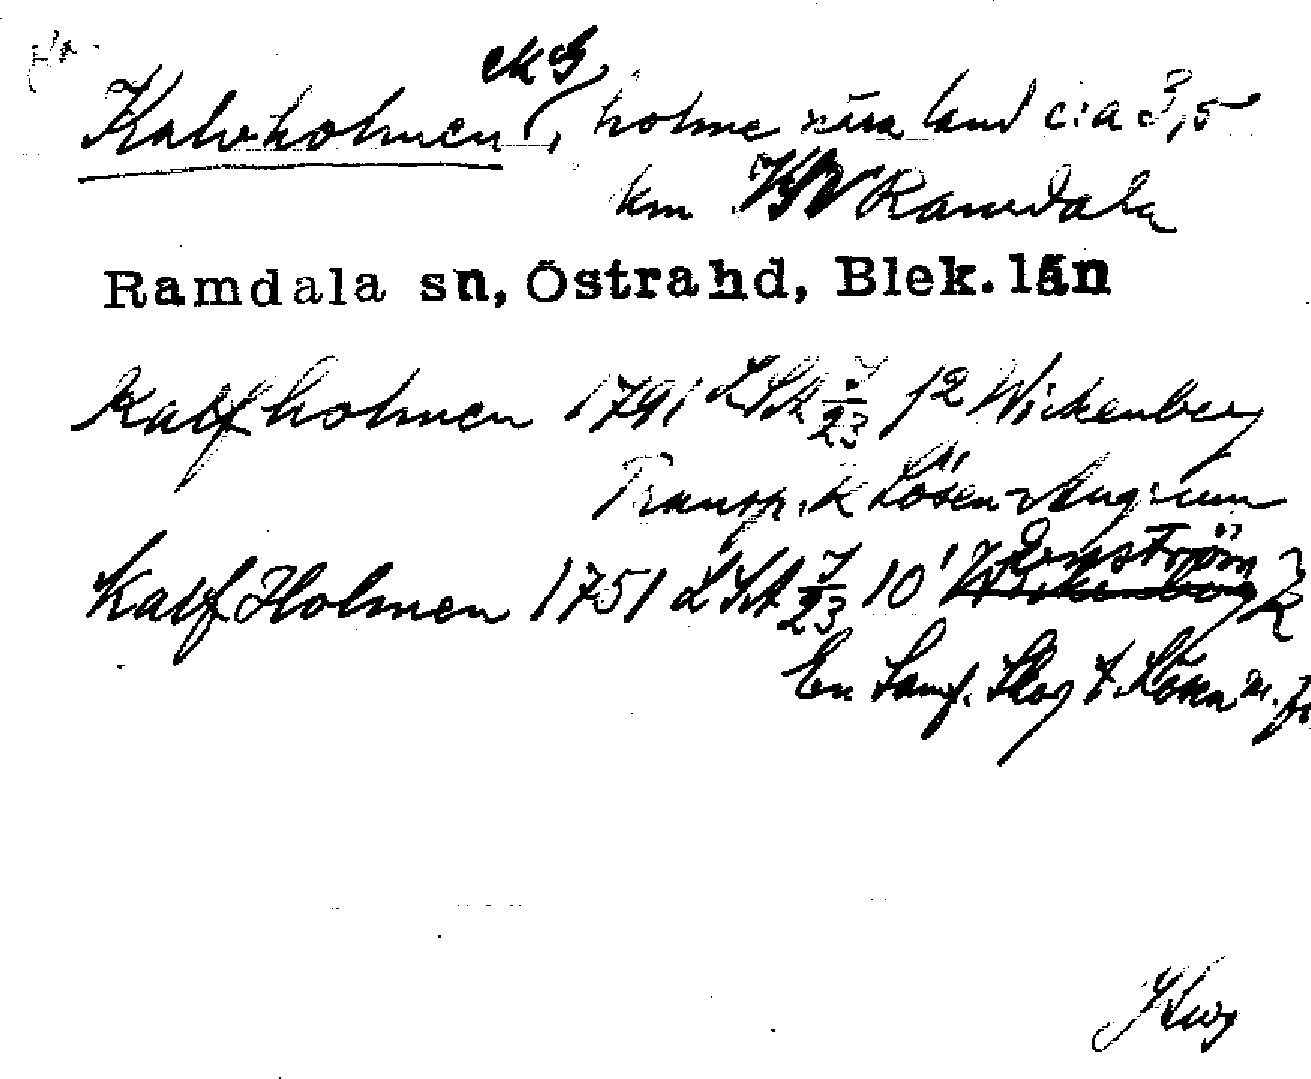 ekG
Kalvholmen, holme nära land c:a 3,5
km Ramdala
Ramdala sn, Östra hd, Blek. län
Kalfholmen 1791 LSA J/23 12 Wickenberg
Transp. k Lösen-Augerum
Kalf Holmen 1751 LSA J/23 10 Wickenberg
En Samf. Skog t. Lösen m.fl